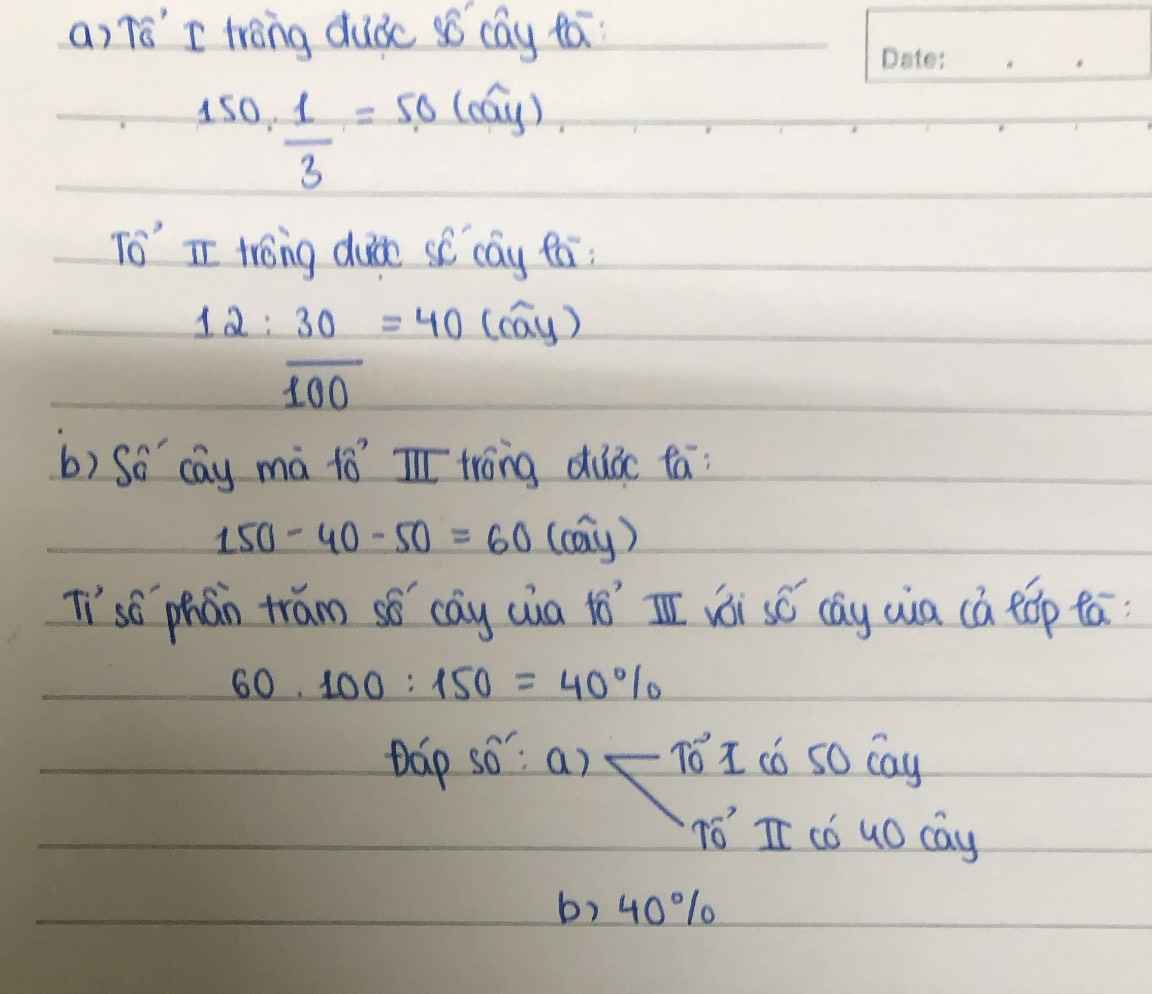 a) Tổ I trồng được số cây là:
Date: . .
150 . 1/3 = 50 (cây)
Tổ II trồng được số cây là:
12 : 30/100 = 40 (cây)
b) Số cây mà tổ III trồng được là:
150 - 40 - 50 = 60 (cây)
Tỉ số phần trăm số cây của tổ III với số cây của cả lớp là:
60 . 100 : 150 = 40%
Đáp số: a) Tổ I có 50 cây
Tổ II có 40 cây
b) 40%